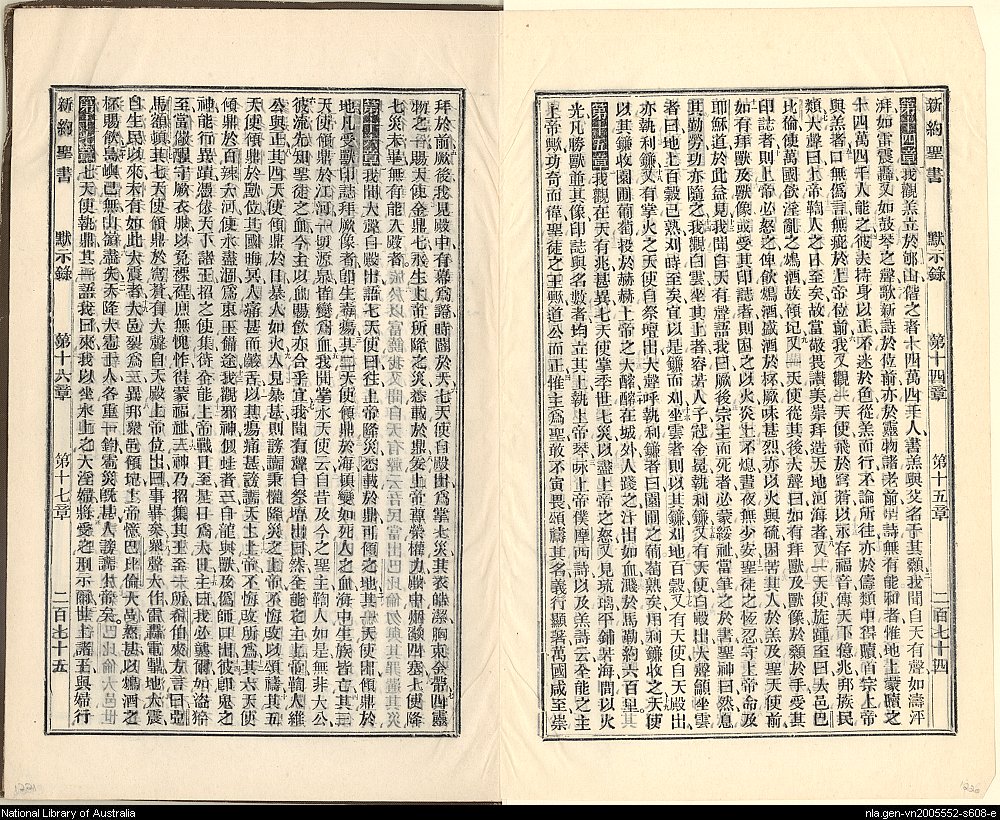 新約聖書 默示錄 第十四章 第十五章 二百七十四
第十四章 我觀羔立於郇山偕之者十四萬四千人書羔與父名于其顙我聞自天有聲如濤澎
湃如雷震轟又如鼓琴之聲歌新詩於位前亦於靈物諸老前是詩無有能和者惟地上蒙贖之
十四萬四千人能之彼夫持身以正不迷於色從羔而行不論所往亦於儔類中得贖首宗上帝
與羔者口無僞言無疵於上帝位前我又觀一天使飛於穹蒼以永存福音傳天下億兆邦族民
類大聲曰上帝鞫人之日至矣故當敬畏讚美崇拜造天地河海者又一天使旋踵至曰大邑巴
比倫使萬國飲淫亂之鴆酒故傾圮又一天使從其後大聲曰如有拜獸及獸像於顙於手受其
印誌者則上帝必怒之俾飲鴆酒盛酒於杯厥味甚烈亦以火與硫困苦其人於羔及天使前
如有拜獸及獸像或受其印誌者則困之以火炎上不熄晝夜無少安聖徒之恆忍守上帝命及
耶穌道於此益見我聞自天有聲語我曰厥後宗主而死者必蒙綏祉當筆之於書聖神曰然息
其勤勞功亦隨之我觀白雲坐其上者容若人子冠金冕執利鎌又有天使自殿出大聲籲坐雲
者曰地上百穀已熟刈時至矣宜以是鎌而刈坐雲者則以其鎌刈地百穀又有天使自天殿出
亦執利鎌又有掌火之天使自祭壇出大聲呼執利鎌者曰園圃之葡萄熟矣用利鎌收之天使
以其鎌收園圃葡萄投於赫赫上帝之大醡醡在城外人踐之汁出如血濺於馬勒約六百里
第十五章 我觀在天有兆甚異七天使掌季世七災以盡上帝之怒又見琉璃平鋪若海間以火
光凡勝獸並其像印誌與名數者均立其上執上帝琴咏上帝僕摩西詩以及羔詩云全能之主
上帝歟功奇而偉聖徒之王歟道公而正惟主爲聖敢不寅畏頌禱其名義行顯著萬國咸至崇
新約聖書 默示錄 第十六章 第十七章 二百七十五
拜於前厥後我見殿中有幕爲證時闢於天七天使自殿出爲掌七災其衣皓潔胸束金帶四靈
物之一賜天使金鼎七永生上帝所降之災悉載於鼎爰上帝尊榮權力鼎中煙燄四塞上使降
七災未畢無有能入殿者
第十六章 我聞大聲自殿出語七天使曰往上帝降災悉載於鼎可傾之地其一天使以鼎傾於
地凡受獸印誌拜厥像者卽生毒瘍其二天使傾鼎於海頓變如死人之血海中生族皆亡其三
天使傾鼎於江河一切源泉皆變爲血我聞掌水天使云自昔及今之聖主鞫人如是無非大公
彼流先知聖徒之血今主以血賜飲亦合乎宜我聞有聲自祭壇出曰然全能之主上帝鞫人維
公與正其四天使傾鼎於日暴人如火人見暴甚則謗讟秉權降災之上帝不悔改以頌禱其五
天使傾鼎於獸位其國晦冥人痛甚而齰舌以甚瘍痛甚謗讟天上上帝不悔改所爲其六天使
傾鼎於百辣大河使水盡涸爲東王備途我觀邪神似蛙者三自龍與獸及僞師口出彼鬼之
神能行異蹟憑依天下諸王招之使集待全能上帝戰日至是日爲大日主曰我必襲爾如盜猝
至當儆醒守厥衣服以免裸裎庶無愧怍得蒙福祉三神乃招集其王至一所希伯來方言曰亞
馬額頓其七天使傾鼎於穹蒼有大聲自天殿上帝位出曰事畢矣衆聲大作雷轟電擊地大震
自生民以來未有如此大震者大邑裂爲三異邦衆邑傾圮上帝憶巴比倫大邑怒甚以鴆酒之
杯賜飲島嶼已無山陵盡失天降大雹在人各重一鈞雹災旣甚人謗讟上帝矣
第十七章 七天使執鼎其一語我曰來我以坐水上之大淫婦將受之刑示爾世上諸王與婦行
National Library of Australia
nla.gen-vn2005552-s608-e